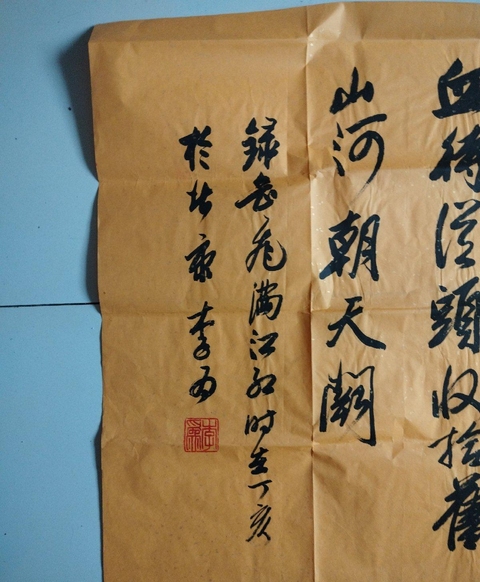 血待從頭收拾舊
山河朝天闕
錄岳飛滿江紅时在丁亥
於北京李為